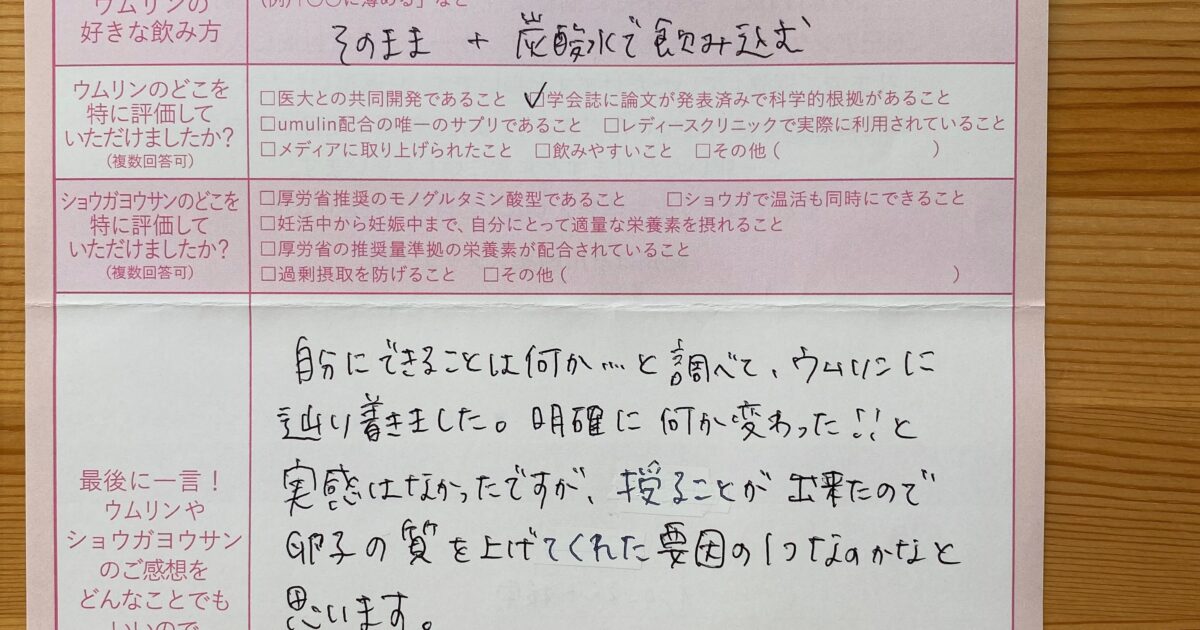 ウムリンの
好きな飲み方
そのまま + 炭酸水で飲み込む
ウムリンのどこを
特に評価して
いただけましたか?
(複数回答可)
□医大との共同開発であること ☑学会誌に論文が発表済みで科学的根拠があること
□umulin配合の唯一のサプリであること □レディースクリニックで実際に利用されていること
□メディアに取り上げられたこと □飲みやすいこと □その他 ( )
ショウガヨウサンのどこを
特に評価して
いただけましたか?
(複数回答可)
□厚労省推奨のモノグルタミン酸型であること □ショウガで温活も同時にできること
□妊活中から妊娠中まで、自分にとって適量な栄養素を摂れること
□厚労省の推奨量準拠の栄養素が配合されていること
□過剰摂取を防げること □その他 ( )
最後に一言!
ウムリンや
ショウガヨウサン
のご感想を
どんなことでも
いいので
自分にできることは何か....と調べて、ウムリンに
辿り着きました。明確に何か変わった!!と
実感はなかったですが、授ることが出来たので
卵子の質を上げてくれた要因の1つなのかなと
思います。